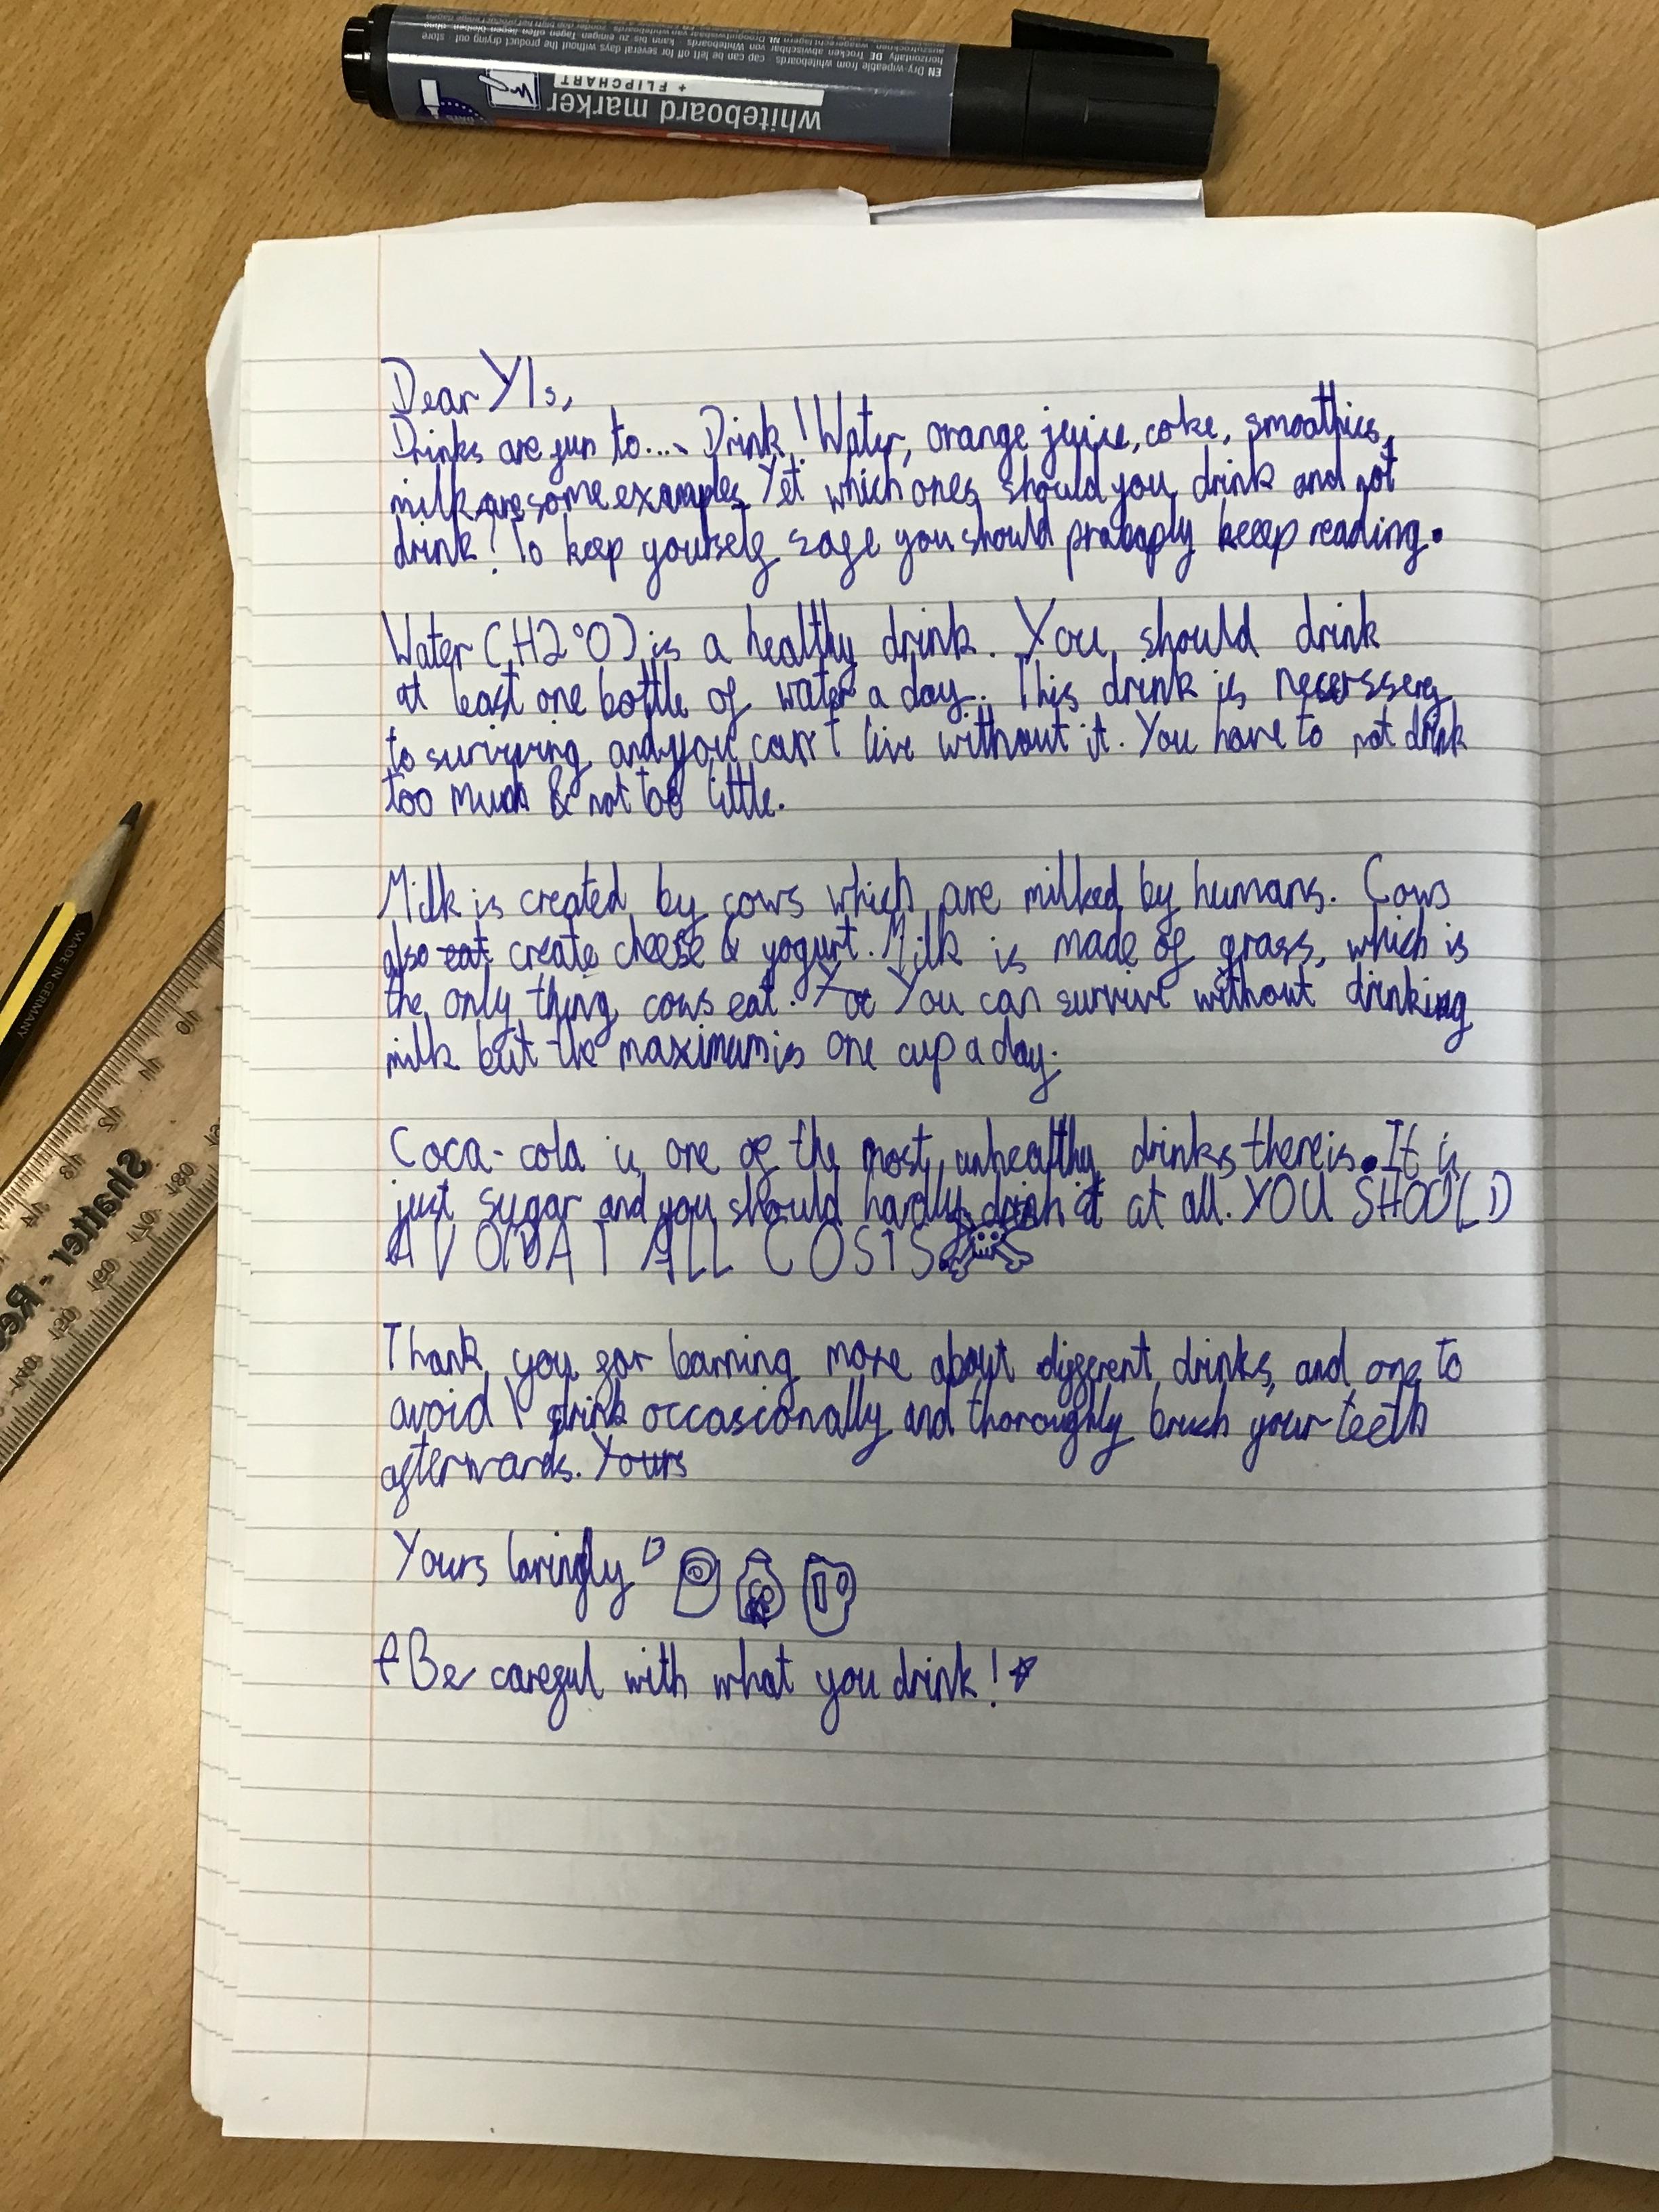 EN Dry-wipeable from whiteboards. cap can be left off for several days without the product drying out. store
horizontally. DE Trocken abwischbar von Whiteboards. kann bis zu einigen Tagen offen liegen bleiben ohne
whiteboard marker
+ FLIPCHART
Dear Y1s,
Drinks are fun to.... Drink! Water, orange juice, coke, smoothies,
milk are some examples. Yet which ones should you drink and not
drink? To keep yourself safe you should probaply keeep reading.
Water (H2°O) is a healthy drink. You should drink
at least one bottle of water a day. This drink is necerssery
to surviving and you can't live without it. You have to not drink
too much & not too little.
Milk is created by cows which are milked by humans. Cows
also eat create cheese & yogurt. Milk is made of grass, which is
the only thing cows eat. You can survive without drinking
milk but the maximum is one cup a day.
Coca-cola is one of the most unhealthy drinks there is. It is
just sugar and you should hardly drink it at all. YOU SHOOLD
AVOID AT ALL COSTS
Thank you for learning more about different drinks, and one to
avoid \ drink occascionally and thoroughly brush your teeth
afterwards. Yours
Yours lovingly
Be careful with what you drink!
MADE IN GERMANY
Shatter-Res